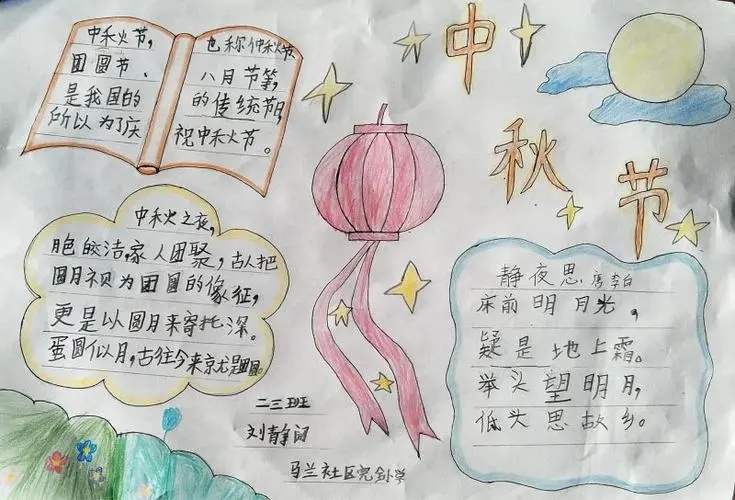 中秋节
中秋节,
团圆节、
是我国的
所以为了庆
也称仲秋节
八月节等,
的传统节日,
祝中秋节。
中秋之夜,
皎洁,家人团聚,古人把
圆月视为团圆的像征,
更是以圆月来寄托深。
蛋圆似月,古往今来
静夜思 唐李白
床前明月光,
疑是地上霜。
举头望明月,
低头思故乡。
二三班
刘静
马兰社区完全小学